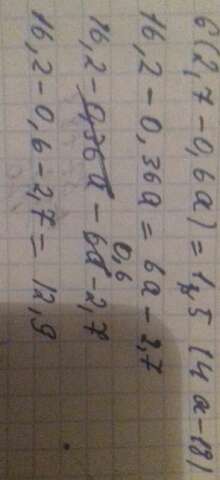 6(2,7-0,6a)=1,5(4a-18)
16,2-0,36a=6a-2,7
16,2-0,36a-6a-2,7
0,6
16,2-0,6-2,7=12,9